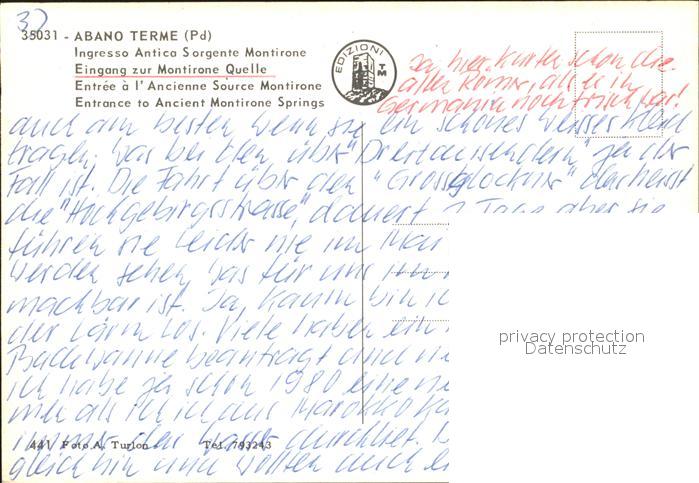 32
35031 - ABANO TERME (Pd)
Ingresso Antica Sorgente Montirone
Eingang zur Montirone Quelle
Entrée à l'Ancienne Source Montirone
Entrance to Ancient Montirone Springs
EDIZIONI TM
Ja, hier kurten schon die
alten Römer, als es in
Germanien noch frisch war!
auch am besten wenn sie ein schönes weisses Kleid
tragen, was bei den über "Dreitausendern" ja der
Fall ist. Die Fahrt über den "Grossglockner" das heisst
die "Hochgebirgsstrasse", dauert 2 Tage aber sie
führen sie leider nie im Mai
werden sehen was für uns im
machbar ist. Ja, kaum bin ic
der Lärm los. Viele haben ein
Badewanne beantragt und
ich habe ja schon 1980 eine
mir als ich ich aus Marokko ka
immer der durchlief.
gleich hin und wollten auch
441 Foto A. Turlon Tel. 793243
privacy protection
Datenschutz